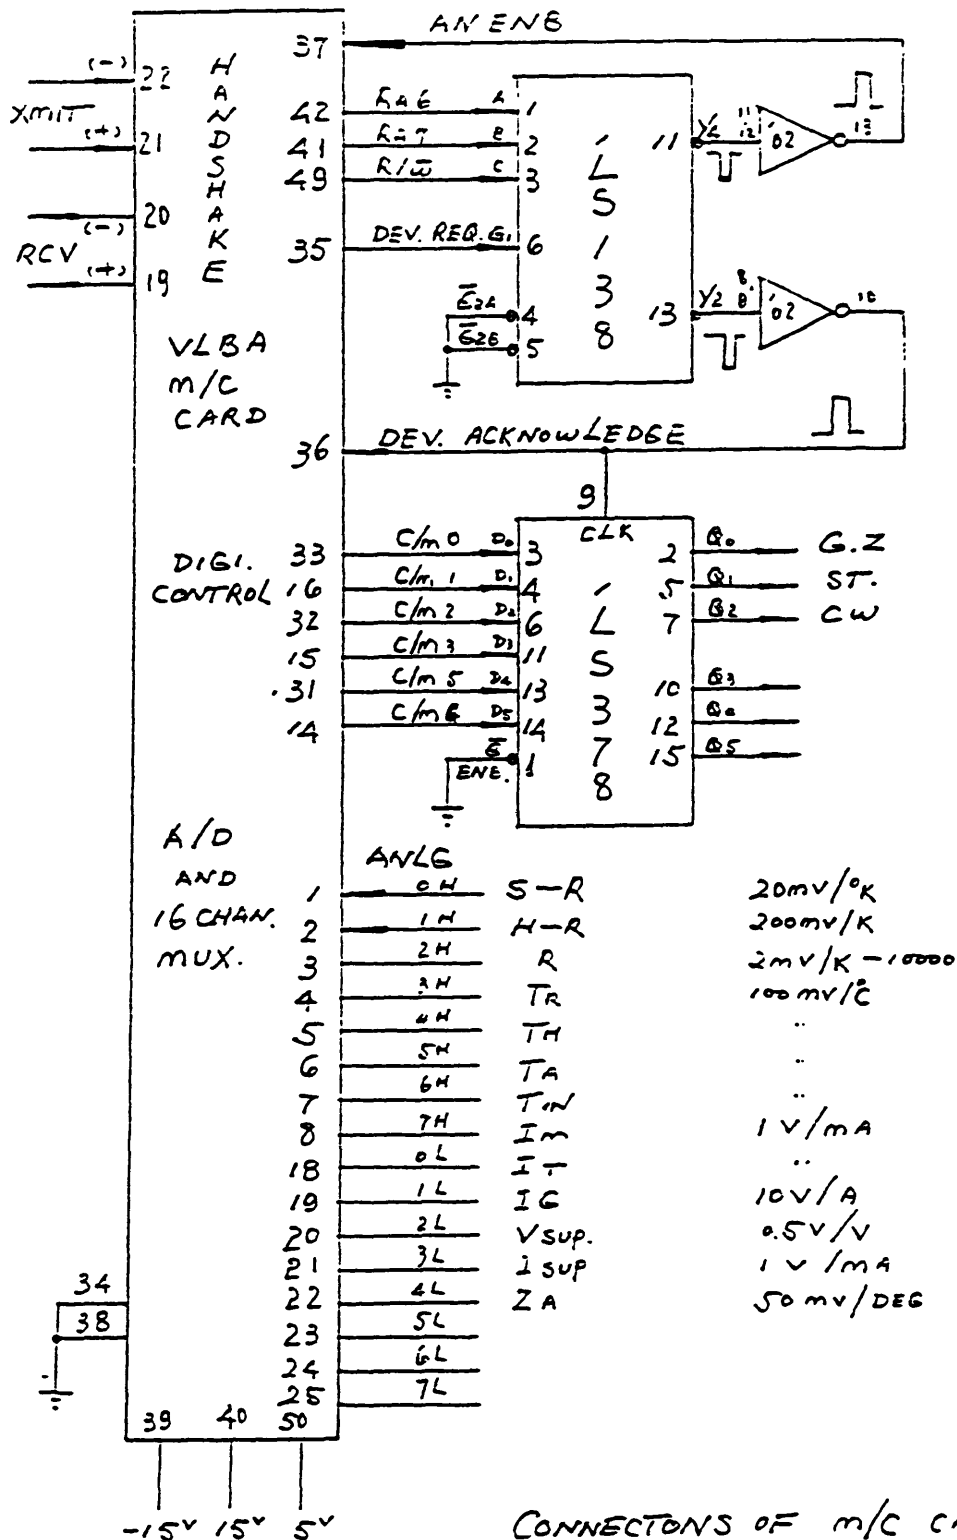 AN ENB
37
22 (-)
XMIT
21 (+)
20 (-)
RCV
19 (+)
HANDSHAKE
42 A 1
41 B 2
49 R/W̅ C 3
35 DEV. REQ. G1 6
4
5
'LS138
11 Y4 11 12 '02 13
13 Y2 8 '02 10
VLBA
M/C
CARD
36 DEV. ACKNOWLEDGE
9
CLK
DIGI.
CONTROL
33 C/m 0 D0 3
16 C/m 1 D1 4
32 C/m 2 D2 6
15 C/m 3 D3 11
31 C/m 5 D4 13
14 C/m 6 D5 14
ENE. 1
'LS378
2 Q0 G.Z
5 Q1 ST.
7 Q2 CW
10 Q3
12
15 Q5
A/D
AND
16 CHAN.
MUX.
ANLG
1 0H S-R 20mv/°K
2 1H H-R 200mv/K
3 2H R 2mv/K -10000
4 3H TR 100mv/°C
5 4H TH "
6 5H TA "
7 6H TIN "
8 7H Im 1 V/mA
18 0L IT "
19 1L IG 10V/A
20 2L Vsup. 0.5V/V
21 3L isup 1 V/mA
22 4L ZA 50mv/DEG
23 5L
24 6L
25 7L
34
38
39 40 50
-15V 15V 5V
CONNECTONS OF M/C